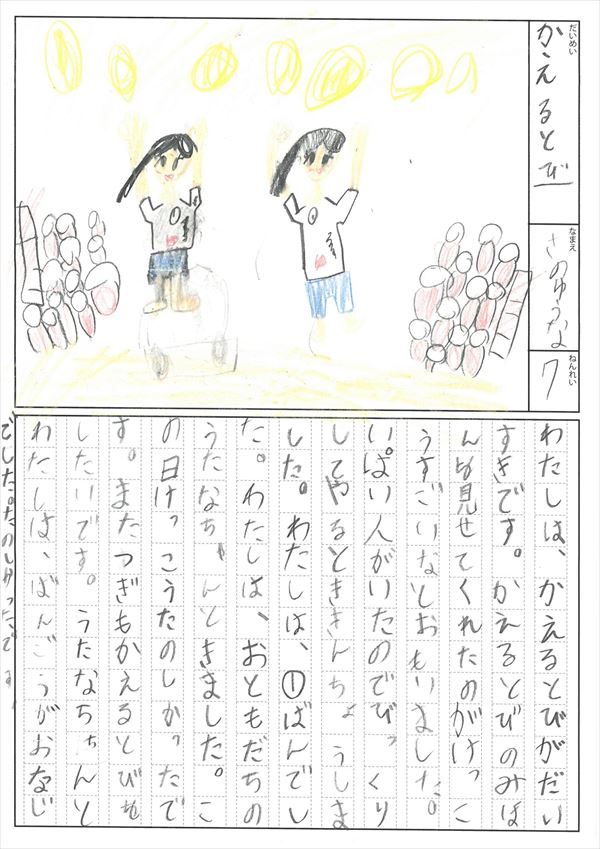 だいめい
かえるとび
なまえ
さのゆうな
ねんれい
7
わたしは、かえるとびがだい
すきです。かえるとびのみほ
んを見せてくれたのがけっこ
うすごいなとおもいました。
いっぱい人がいたのでびっくり
してやるときんちょうしま
した。わたしは、①ばんでし
た。わたしは、おともだちの
うたなちゃんときました。こ
の日けっこうたのしかったで
す。またつぎもかえるとびを
したいです。うたなちゃんと
わたしは、ばんごうがおなじ
でした。たのしかったです。